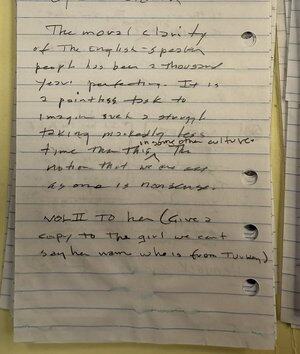 The moral clarity
of The English-speaken
people has been a thousand
years perfecting. It is
a pointless task to
imagin such a struggle
taking markedly less
in some other culture.
time than this. The
notion that we are all
as one is nonsense.
VOL II To her (Give a
copy to The girl we can't
say her name who is from Turkey)